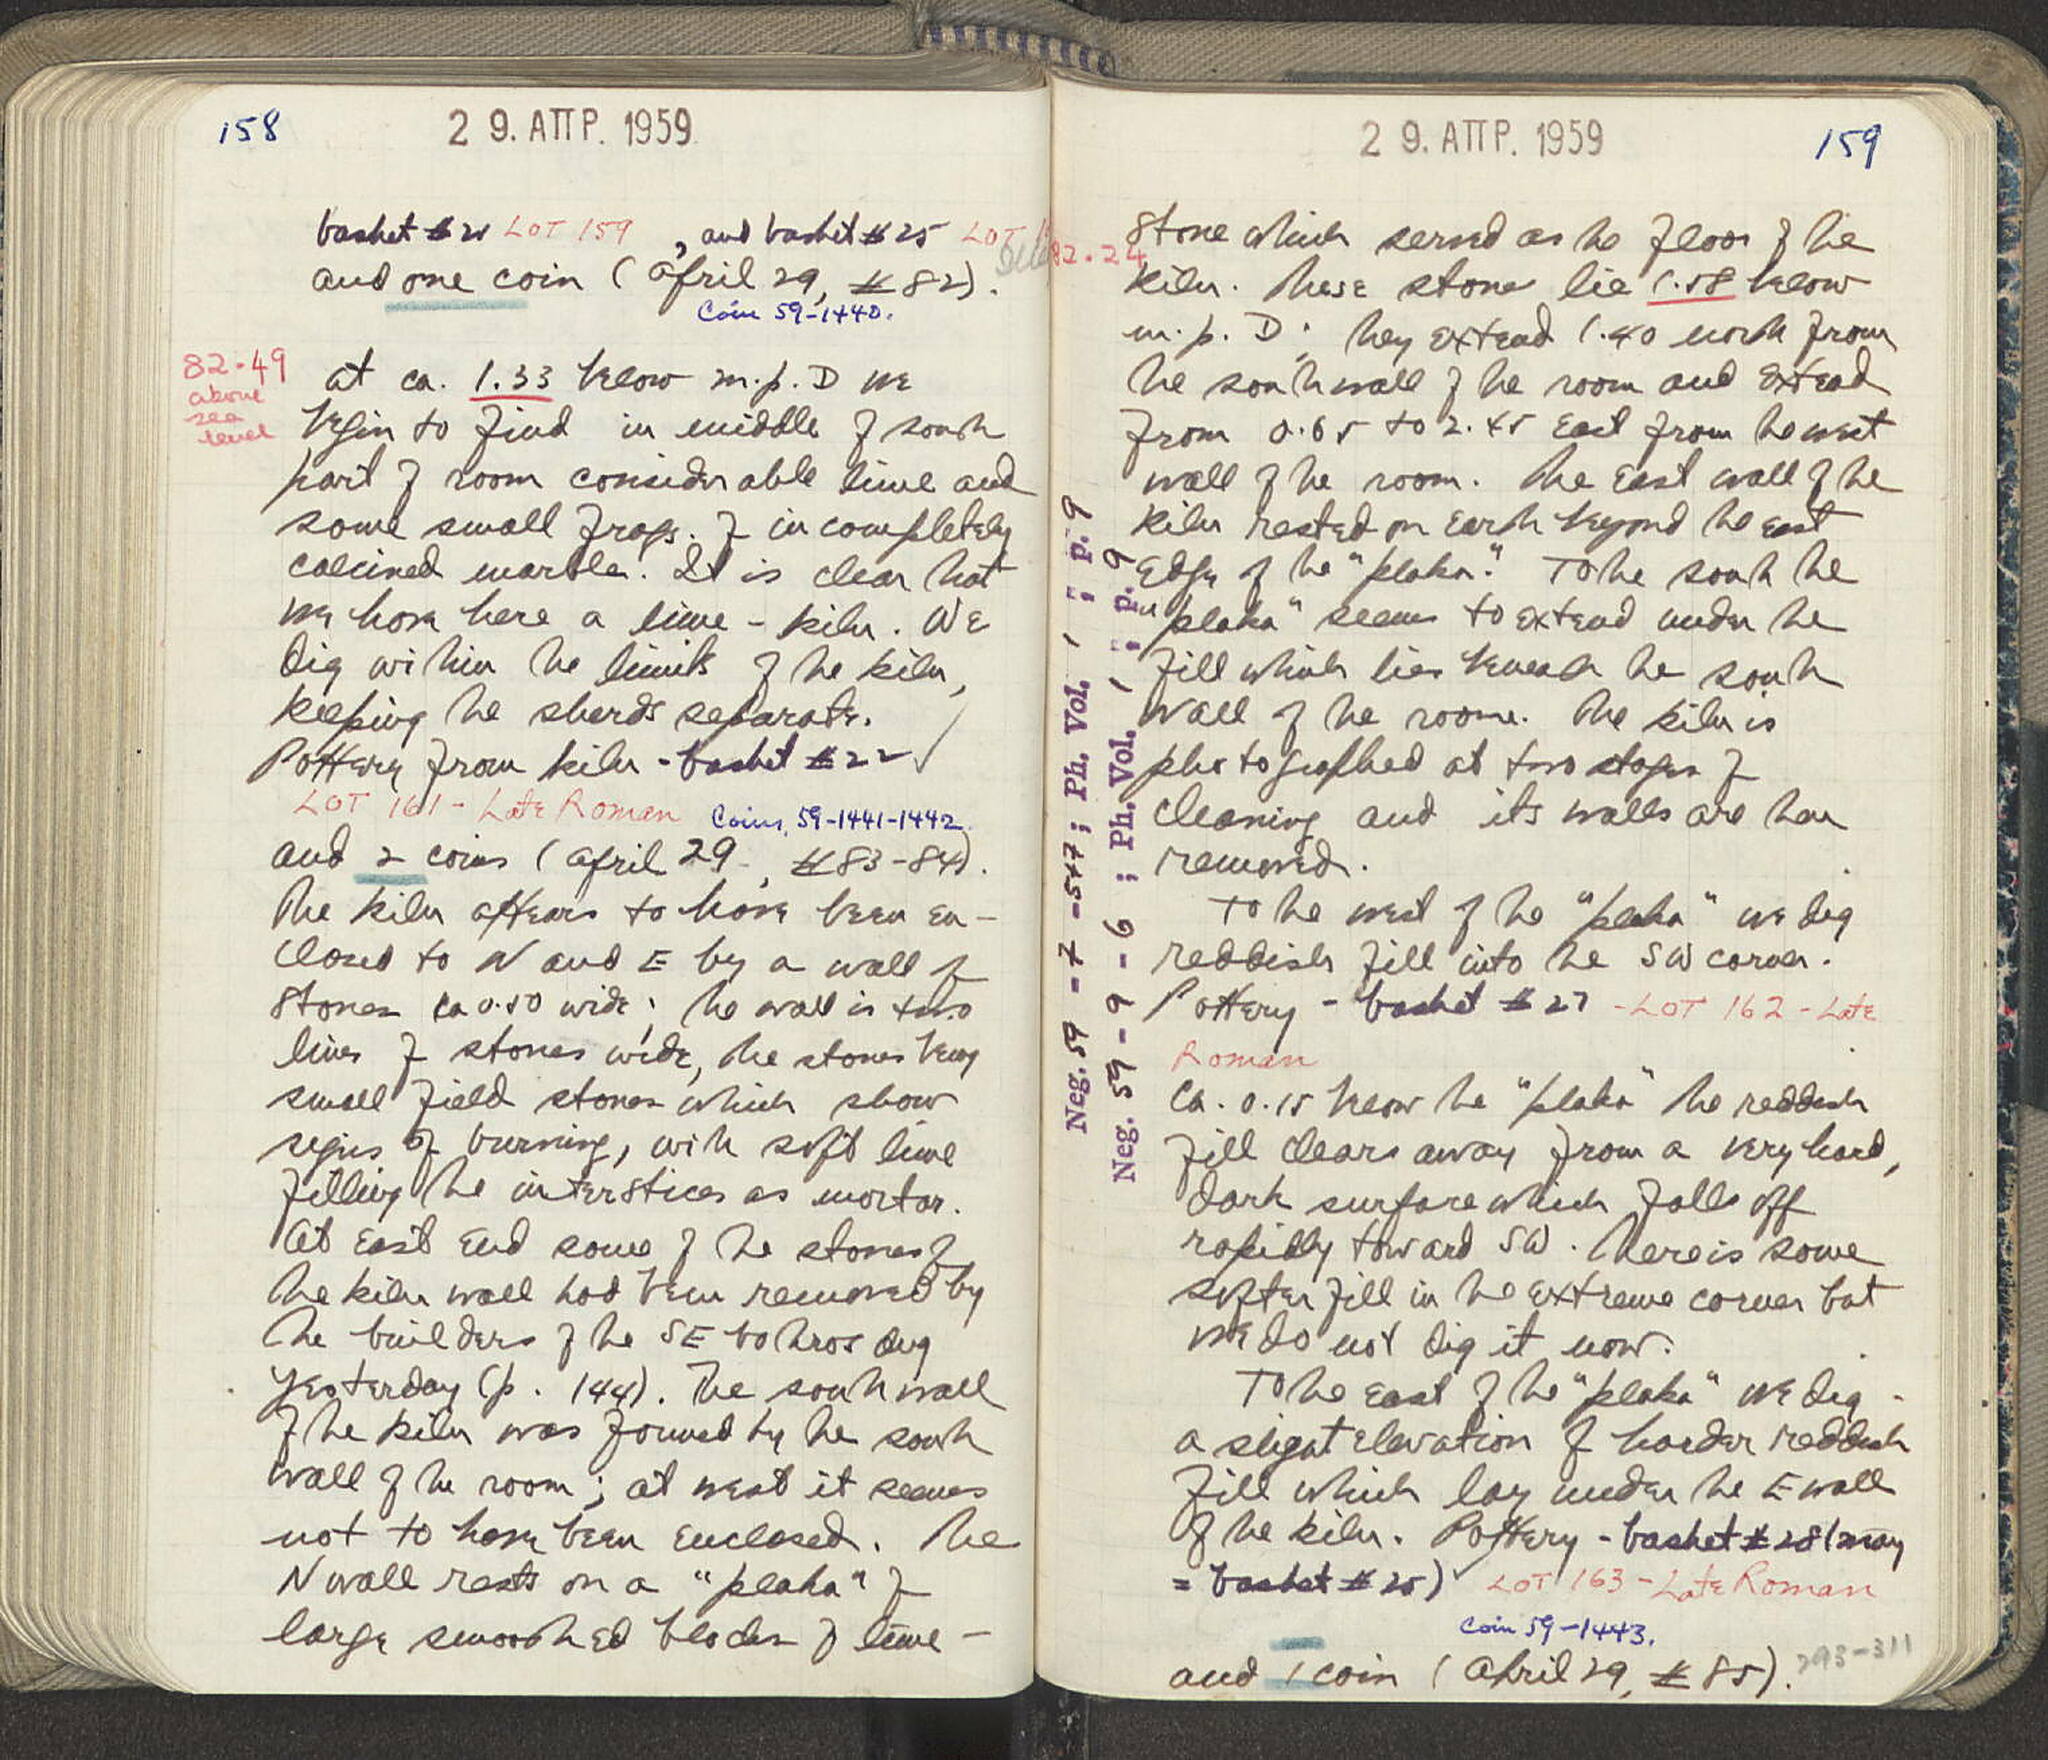 158
29. ΑΠΡ. 1959
basket #21 LOT 159, and basket #25 LOT
and one coin (April 29, #82).
Coin 59-1440.
82.49
above
sea
level
at ca. 1.33 below m.p. D we
begin to find in middle of south
part of room considerable lime and
some small frags. of incompletely
calcined marble. It is clear that
we have here a lime-kiln. We
dig within the limits of the kiln,
keeping the sherds separate.
Pottery from kiln - basket #22 ✓
LOT 161 - Late Roman Coins 59-1441-1442
and 2 coins (April 29, #83-84).
The kiln appears to have been en-
closed to N and E by a wall of
stones ca 0.50 wide; the wall is two
lines of stones wide, the stones being
small field stones which show
signs of burning, with soft lime
filling the interstices as mortar.
At East End some of the stones of
the kiln wall had been removed by
the builders of the SE bothros dug
yesterday (p. 144). The south wall
of the kiln was formed by the south
wall of the room; at west it seems
not to have been enclosed. The
N wall rests on a "plaka" of
large smoothed blocks of lime-
29. ΑΠΡ. 1959
159
82.24
stone which served as the floor of the
kiln. These stones lie 1.58 below
m.p. D; they extend 1.40 north from
the south wall of the room and extend
from 0.65 to 2.45 East from the west
wall of the room. The East wall of the
kiln rested on earth beyond the east
edge of the "plaka." To the south the
"plaka" seems to extend under the
fill which lies beneath the south
wall of the room. The kiln is
photographed at two stages of
cleaning and its walls are then
removed.
Neg. 59-7-5+7; Ph. Vol. I; p. 9
Neg. 59-9-6; Ph. Vol. I; p. 9
To the west of the "plaka" we dig
reddish fill into the SW corner.
Pottery - basket #27 - LOT 162 - Late
Roman
Ca. 0.15 below the "plaka" the reddish
fill clears away from a very hard,
dark surface which falls off
rapidly toward SW. There is some
softer fill in the extreme corner but
we do not dig it now.
To the East of the "plaka" we dig
a slight elevation of harder reddish
fill which lay under the E wall
of the kiln. Pottery - basket #28 (may
= basket #25) ✓ LOT 163 - Late Roman
Coin 59-1443.
and 1 coin (April 29, #85).
293-311